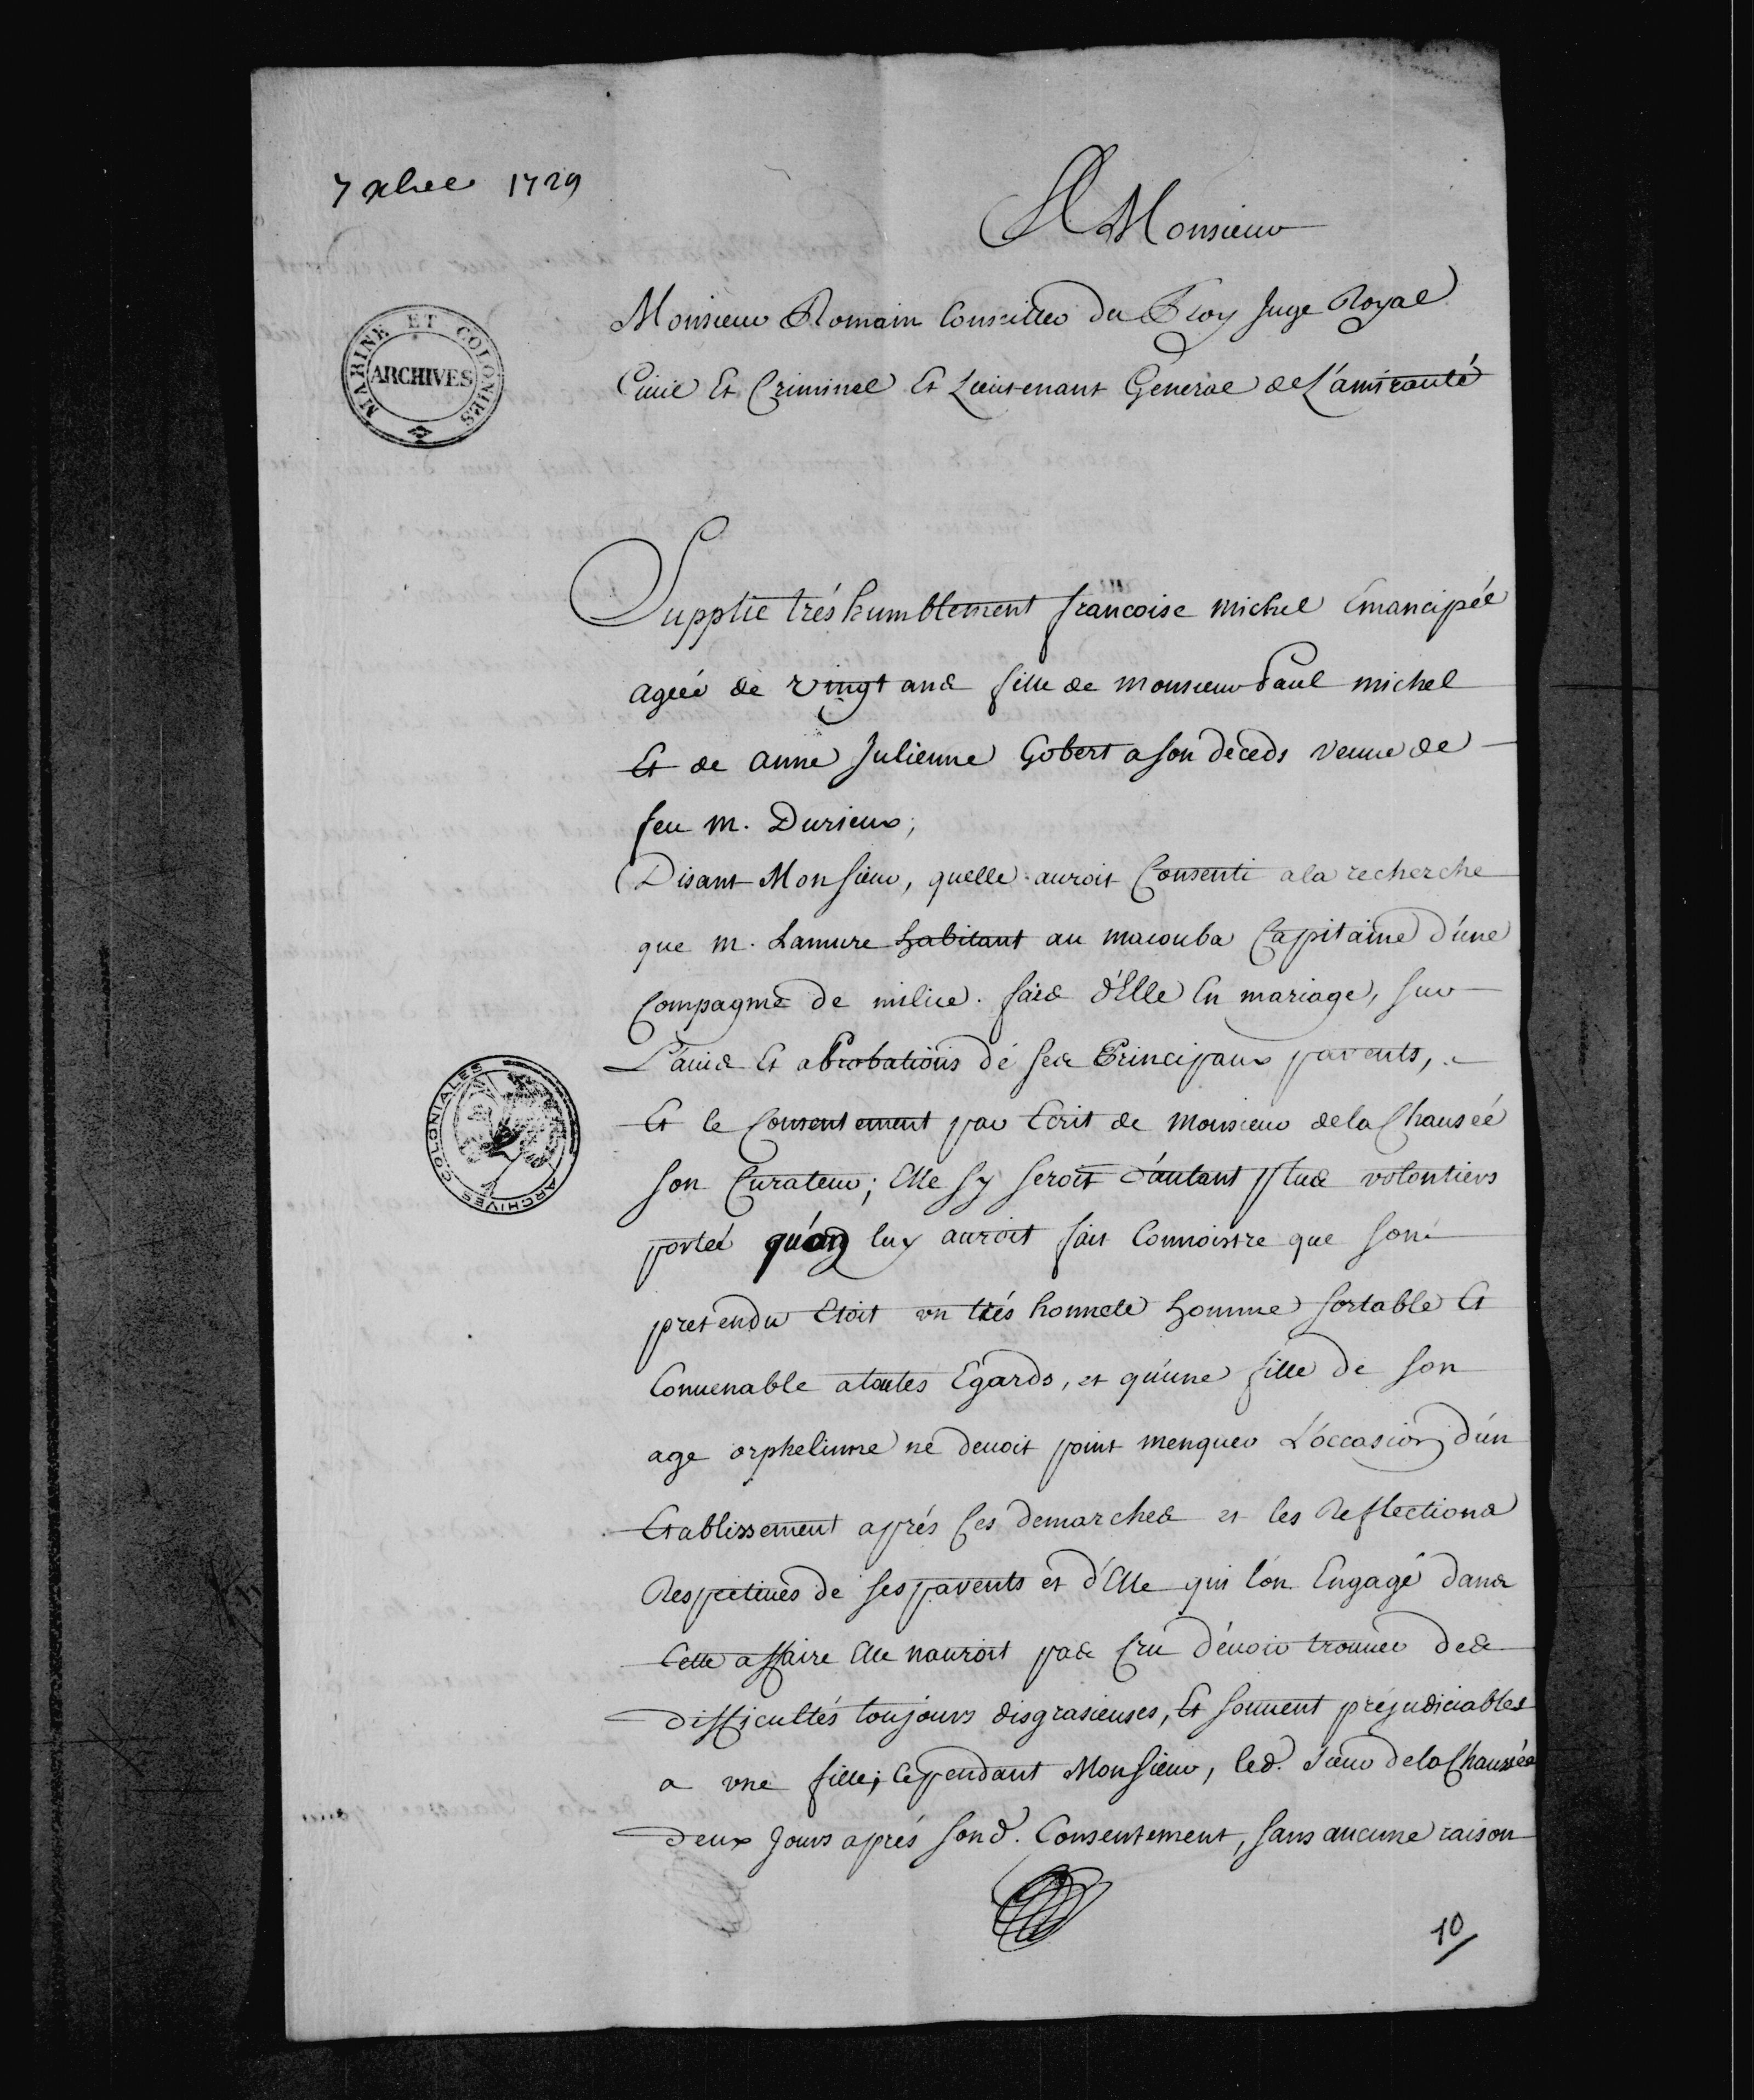 7 xbre 1729
A Monsieur
MARINE ET COLONIES
ARCHIVES
Monsieur Romain Conseiller du Roy Juge Royal
Ciuil Et Criminel Et Lieutenant General de L'amirauté
Supplie trés humblement francoise michel Emancipée
ageé de vingt ans fille de monsieur Paul michel
Et de anne Julienne Gobert a son deceds veuue de
feu m. Durieux,
Disant Monsieur, quelle auroit Consenti a la recherche
que m. Lamure habitant au macouba Capitaine d'une
Compagnie de milice. fais d'Elle En mariage, sur
L'auis Et aprobations de ses Principaux parents,
Et le Consentement par Ecrit de monsieur de la Chauseé
son Curateur; Elle sy seroit d'autant plus volontiers
porteé qu'on luy auroit fait Connoistre que son
pretendu Etoit vn trés honnete homme sortable Et
Conuenable a toutes Egards, et qu'une fille de son
age orphelinne ne deuoit point menquer L'occasion d'un
Etablissement aprés ses demarches et les Reflections
Respectiues de ses parents et d'Elle qui l'on Engagé dans
Cette affaire Elle nauroit pas Cru d'euoir trouuer des
difficultés toujours disgrasieuses, Et souuent prejudiciables
a vne fille; Cependant Monsieur, led. sieur de la Chaussée
deux Jours aprés sond. Consentement, sans aucune raison
ARCHIVES COLONIALES
10